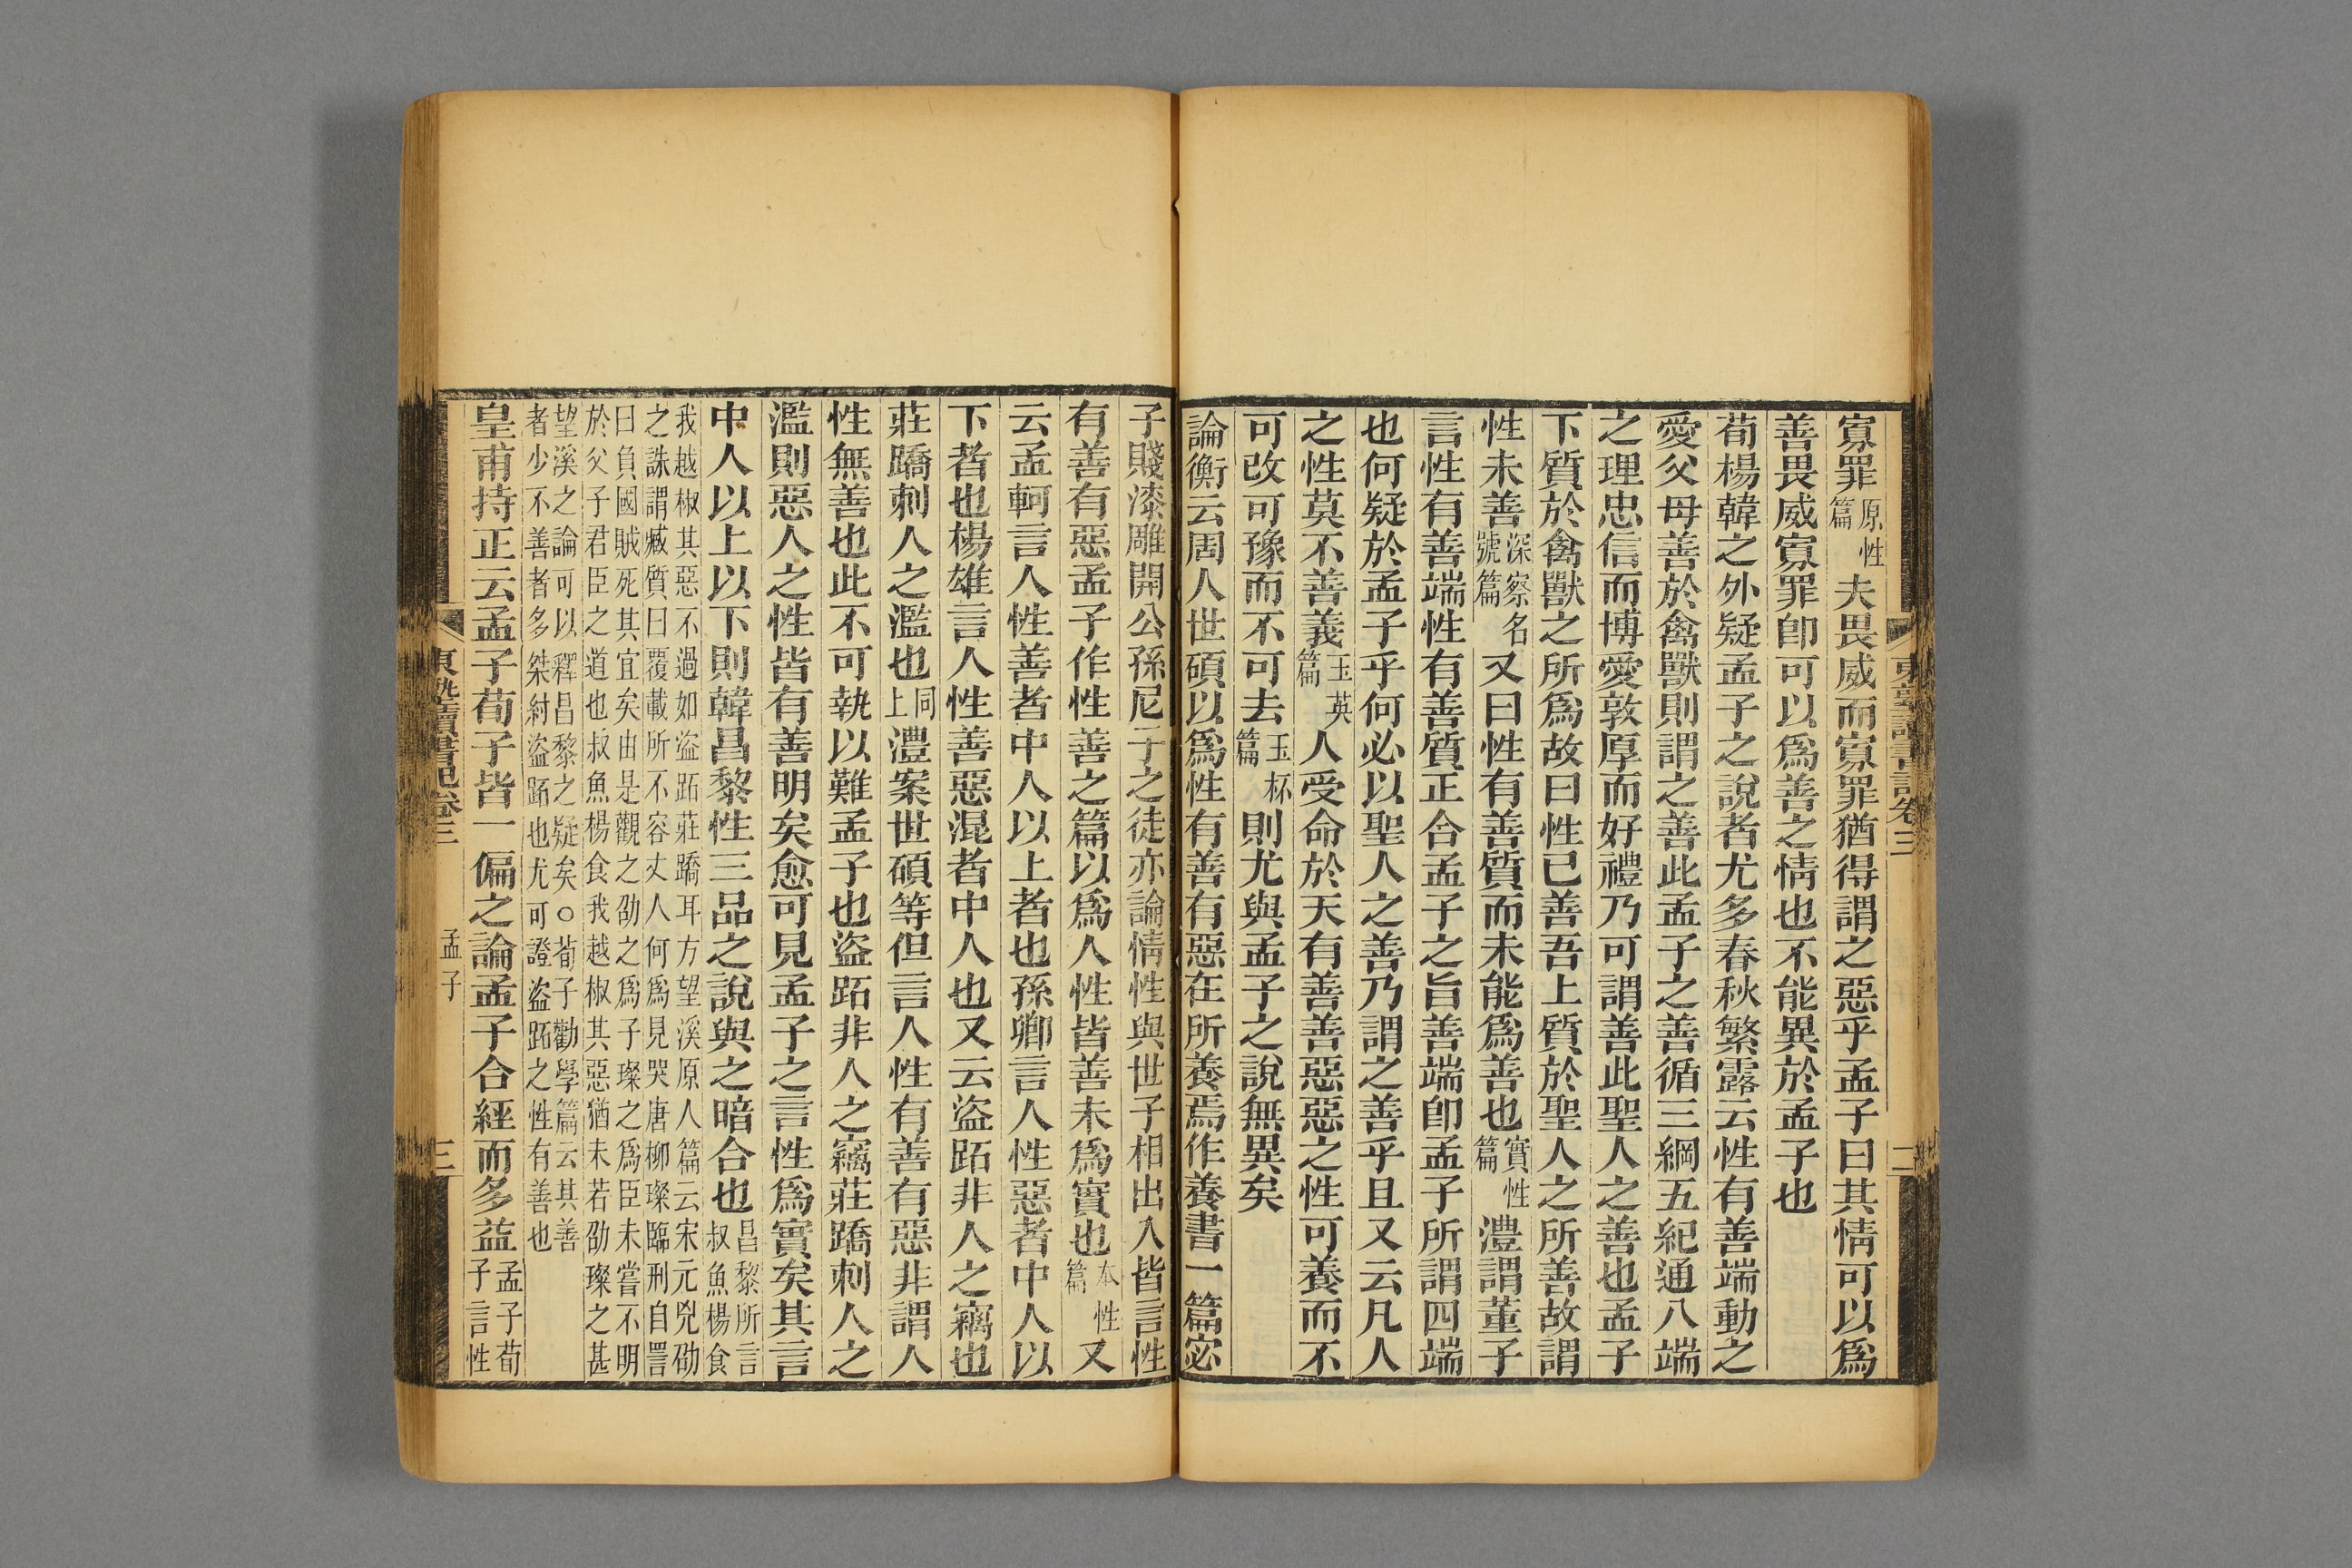 寡罪原性篇夫畏威而寡罪猶得謂之惡乎孟子曰其情可以爲
善畏威寡罪卽可以爲善之情也不能異於孟子也
荀楊韓之外疑孟子之說者尤多春秋繁露云性有善端動之
愛父母善於禽獸則謂之善此孟子之善循三綱五紀通八端
之理忠信而博愛敦厚而好禮乃可謂善此聖人之善也孟子
下質於禽獸之所爲故曰性已善吾上質於聖人之所善故謂
性未善深察名號篇又曰性有善質而未能爲善也實性篇澧謂董子
言性有善端性有善質正合孟子之旨善端卽孟子所謂四端
也何疑於孟子乎何必以聖人之善乃謂之善乎且又云凡人
之性莫不善義玉英篇人受命於天有善善惡惡之性可養而不
可改可豫而不可去玉杯篇則尤與孟子之說無異矣
論衡云周人世碩以爲性有善有惡在所養焉作養書一篇宓
子賤漆雕開公孫尼子之徒亦論情性與世子相出入皆言性
有善有惡孟子作性善之篇以爲人性皆善未爲實也本性篇又
云孟軻言人性善者中人以上者也孫卿言人性惡者中人以
下者也楊雄言人性善惡混者中人也又云盜跖非人之竊也
莊蹻刺人之濫也同上澧案世碩等但言人性有善有惡非謂人
性無善也此不可執以難孟子也盜跖非人之竊莊蹻刺人之
濫則惡人之性皆有善明矣愈可見孟子之言性爲實矣其言
中人以上以下則韓昌黎性三品之說與之暗合也昌黎所言叔魚楊食
我越椒其惡不過如盜跖莊蹻耳方望溪原人篇云宋元兇劭
之誅謂臧質曰覆載所不容丈人何爲見哭唐柳璨臨刑自詈
曰負國賊死其宜矣由是觀之劭之爲子璨之爲臣未嘗不明
於父子君臣之道也叔魚楊食我越椒其惡猶未若劭璨之甚
望溪之論可以釋昌黎之疑矣○荀子勸學篇云其善
者少不善者多桀紂盜跖也尤可證盜跖之性有善也
皇甫持正云孟子荀子皆一偏之論孟子合經而多益孟子荀子言性
東塾讀書記卷三
孟子
三
東塾讀書記卷三
二